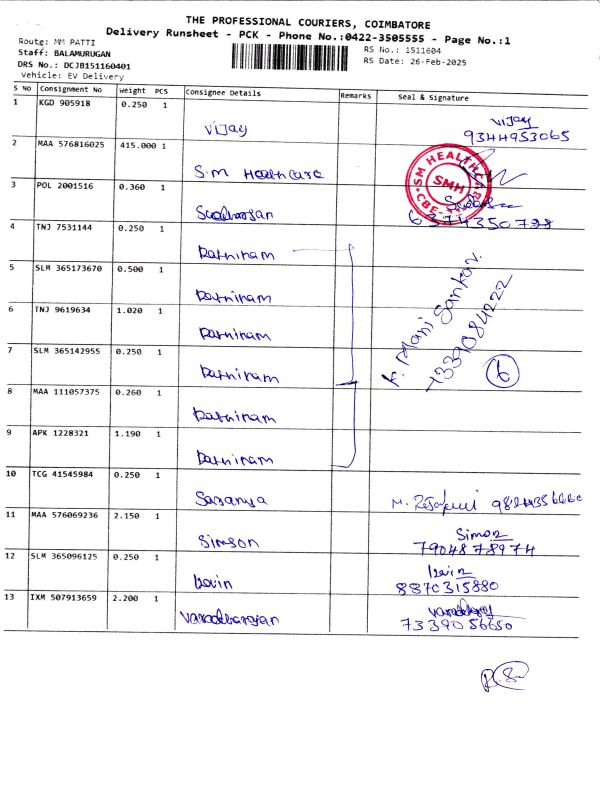 THE PROFESSIONAL COURIERS, COIMBATORE
Delivery Runsheet - PCK - Phone No.:0422-3505555 - Page No.:1
Route: MM PATTI
RS No.: 1511604
Staff: BALAMURUGAN
RS Date: 26-Feb-2025
DRS No.: DCJB151160401
Vehicle: EV Delivery
S No Consignment No Weight PCS Consignee Details Remarks Seal & Signature
1 KGD 905918 0.250 1 Vijay Vijay
9344953065
2 MAA 576816025 415.000 1 S.M Healthcare
SM HEALTHCARE CBE SMH
3 POL 2001516 0.360 1 Sudharsan
6374350798
4 TNJ 7531144 0.250 1 Ratniram
5 SLM 365173670 0.500 1 Ratniram
6 TNJ 9619634 1.020 1 Ratniram
7 SLM 365142955 0.250 1 Ratniram
8 MAA 111057375 0.260 1 Ratniram
9 APK 1228321 1.190 1 Ratniram
K. Mani Sankar.
7339084222
6
10 TCG 41545984 0.250 1 Saranya M.
11 MAA 576069236 2.150 1 Simson Simon
7904878974
12 SLM 365096125 0.250 1 Kevin Kevin
8870315880
13 IXM 507913659 2.200 1 Varadharajan Varadharaj
7339056650